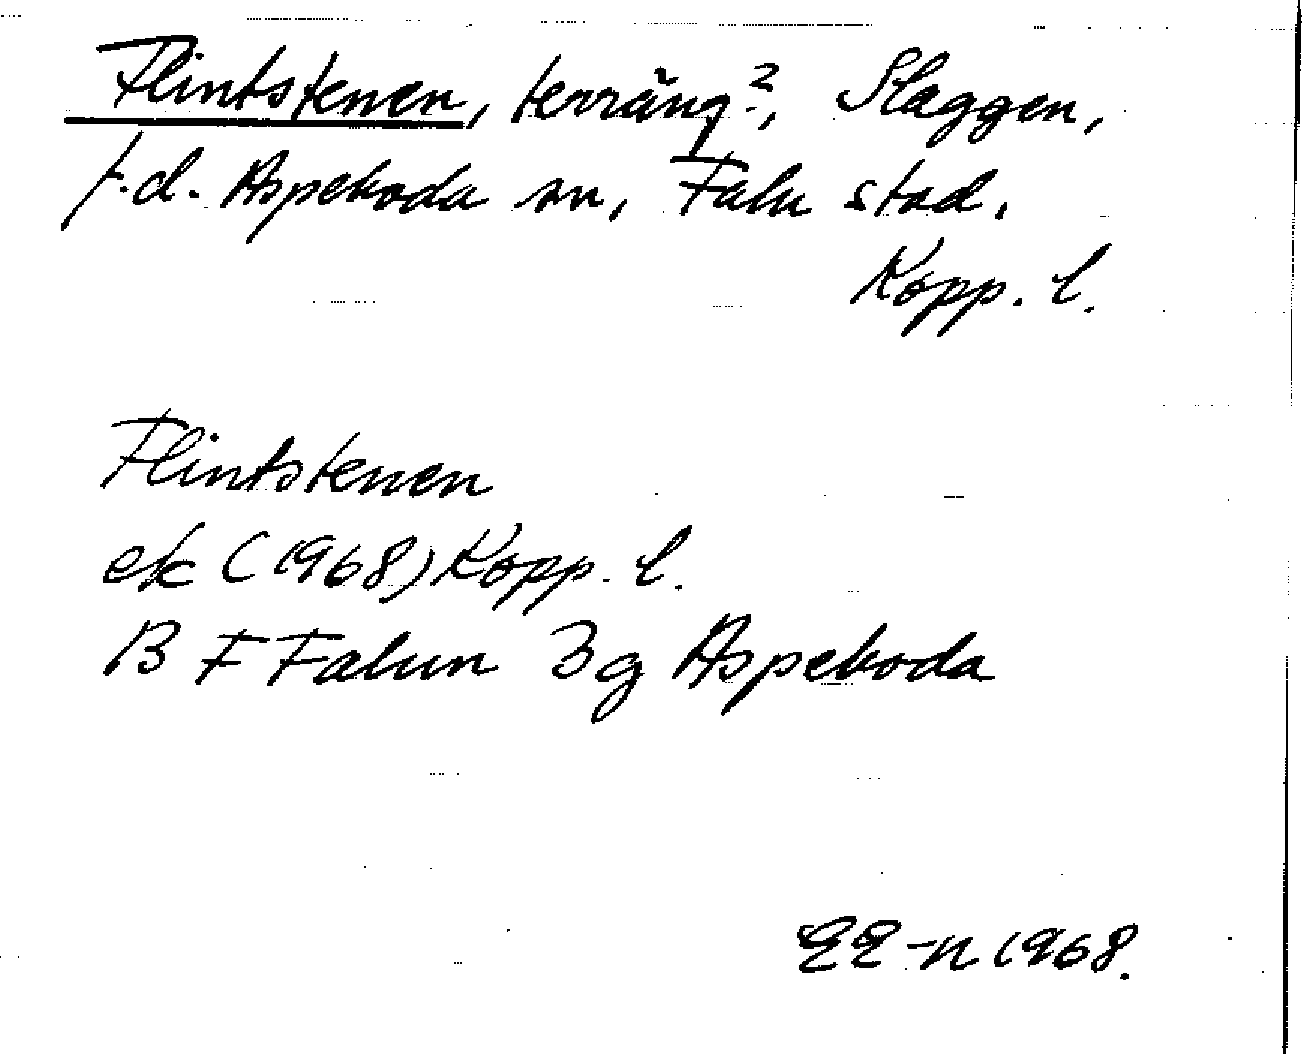 Flintstenen, terräng?, Slaggen,
f.d. Aspeboda sn, Falu stad.
Kopp. l.
Flintstenen
ek (1968) Kopp. l.
B F Falun 3g Aspeboda
EE-n 1968.